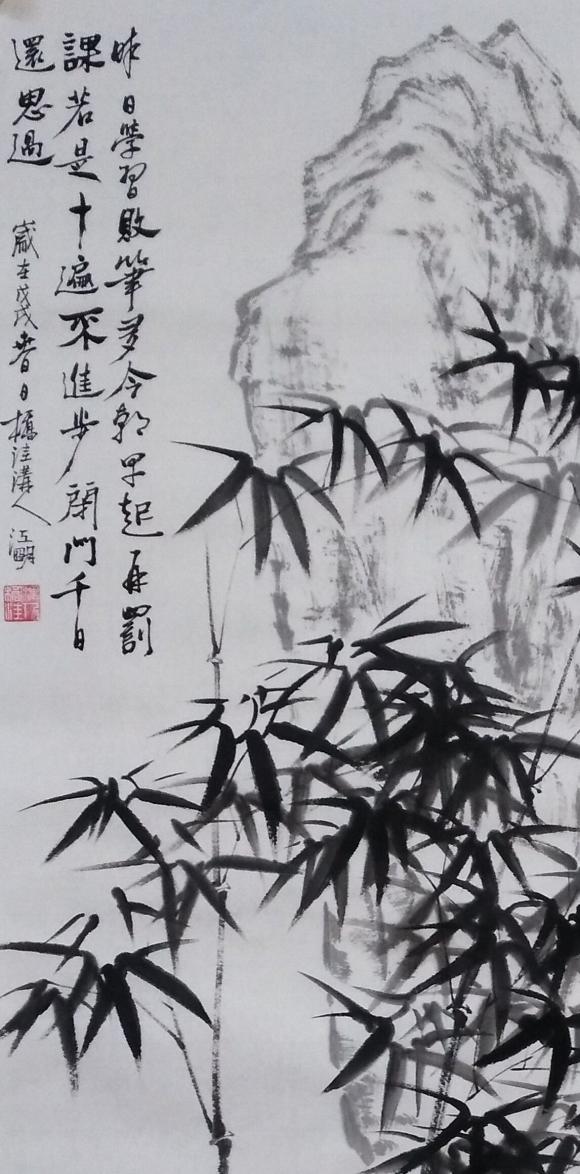 昨日學習敗筆多今朝早起再罰
課若是十遍不進步閉門千日
還思過
歲在戊戌春日檀洼溝人江鷗